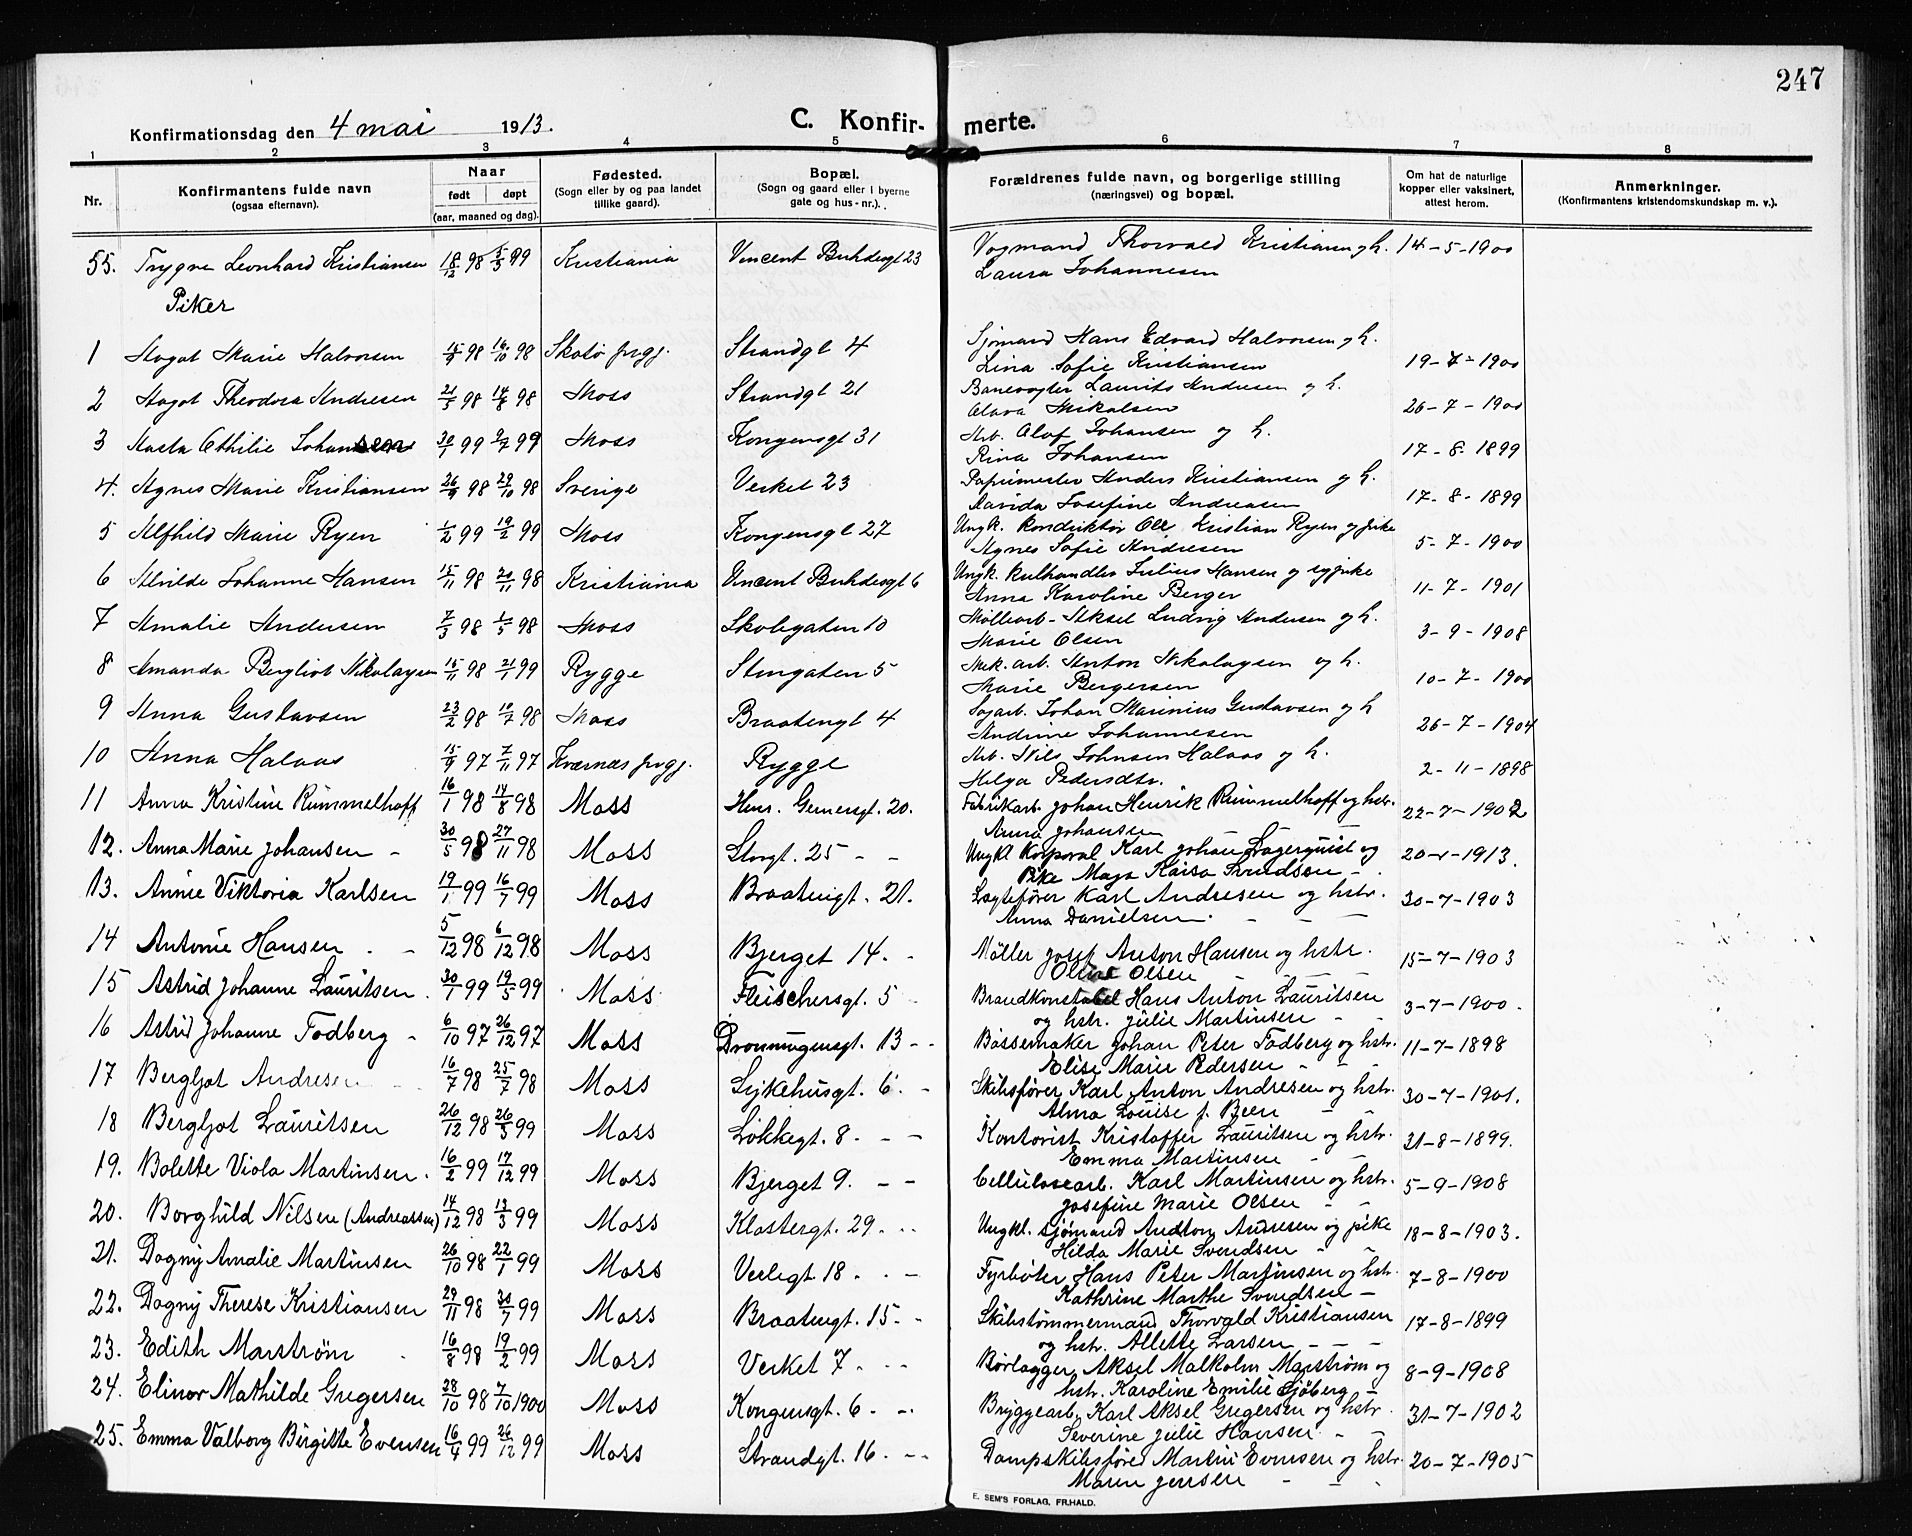 247
Konfirmationsdag den 4 mai 1913.
C. Konfir- merte.
1 2 3 4 5 6 7 8
Nr.
Konfirmantens fulde navn
(ogsaa efternavn).
Naar
født døpt
(aar, maaned og dag).
Fødested.
(Sogn eller by og paa landet
tillike gaard).
Bopæl.
(Sogn og gaard eller i byerne
gate og hus-nr.).
Forældrenes fulde navn, og borgerlige stilling
(næringsvei) og bopæl.
Om hat de naturlige
kopper eller vaksinert,
attest herom.
Anmerkninger.
(Konfirmantens kristendomskundskap m. v.).
55. Trygve Leonhard Kristiansen 18/12 98 5/3 99 Kristiania Vincent Buhdesgt 23 Vogmand Thorvald Kristiansen og h. 14-5-1900
Laura Johannesen
Piker
1 Aagot Marie Halvorsen 15/9 98 16/10 98 Skatø prgj. Strandgt 4 Sjømand Hans Edvard Halvorsen og h.
Lina Sofie Kristiansen 19-7-1900
2 Aagot Theodora Andresen 21/5 98 14/8 98 Moss Strandgt 21 Banevogter Laurits Andresen og h.
Olava Mikalsen 26-7-1900
3 Aasta Othilie Johansen 30/1 99 9/7 99 Moss Kongensgt 31 Arb. Olaf Johansen og h.
Rina Johansen 17-8-1899
4. Agnes Marie Kristiansen 26/9 98 29/10 98 Sverige Verket 23 Papirmester Anders Kristiansen og h.
Davida Josefine Andreasen 17-8-1899
5 Alfhild Marie Ryen 1/2 99 19/2 99 Moss Kongensgt 27 Ungk. konduktør Ole Kristian Ryen og pike
Agnes Sofie Andresen 5-7-1900
6 Alvilde Johanne Hansen 15/11 98 20/11 98 Kristiania Vincent Buhdesgt 6 Ungk. kulhandler Julius Hansen og sypike
Anna Karoline Berger 11-7-1901
7 Amalie Andersen 7/3 98 1/5 98 Moss Skolegaten 10 Møllearb. Aksel Ludvig Andersen og h.
Marie Olsen 3-9-1908
8 Amanda Bergliot Nikolaysen 15/11 98 21/1 99 Rygge Stengaten 5 Mek. arb. Anton Nikolaysen og h.
Marie Bergersen 10-7-1900
9 Anna Gustavsen 23/2 98 10/7 98 Moss Braatengt 4 Sagarb. Johan Marinius Gustavsen og h
Andrine Johannesen 26-7-1904
10 Anna Halaas 15/9 97 7/11 97 Kvernæs prgj. Rygge Arb. Nils Johnsen Halaas og h.
Helga Pedersdtr. 2-11-1898
11 Anna Kristine Rummelhoff 16/1 98 14/8 98 Moss Henr. Gernersgt. 20. Fabrikarb. Johan Henrik Rummelhoff og hstr. 22-7-1902
Anna Johansen
12. Anna Marie Johansen - 30/5 98 27/11 98 Moss Storgt. 25 - - Ungkl Korporal Karl Johan Lagerquist og 20-1-1913.
Pike Maja Kaisa Svendsen -
13. Annie Viktoria Karlsen 19/1 99 16/7 99 Moss Braatengt. 21. Lægtefører Karl Andresen og hstr. 30-7-1903
Anna Danielsen. - - -
14 Antonie Hansen. - 5/12 98 6/12 98 Moss Bjerget 14. - Møller Josef Anton Hansen og hstr. 15-7-1903
Olsen
15 Astrid Johanne Lauritsen. 30/1 99 19/5 99 Moss Fleischersgt. 5 - Brandkonstabel Hans Anton Lauritsen 3-7-1900.
og hstr. Julie Martinsen - -
16 Astrid Johanne Todberg - 6/10 97 26/12 97 Moss Dronningensgt. 13 - - Bøssemaker Johan Peter Todberg og hstr. 11-7-1898
Elise Marie Pedersen - - -
17 Bergljot Andresen 16/7 98 25/7 98 Moss Sykehusgt. 6. - Skibsfører Karl Anton Andresen og hstr. 30-7-1901.
Alma Louise f. Beer - -
18 Bergljot Lauritsen 26/12 98 26/3 99 Moss Løkkegt. 8. - - Kontorist Kristoffer Lauritsen og hstr. 31-8-1899.
Emma Martinsen - -
19. Bolette Viola Martinsen. 16/2 99 17/12 99 Moss Bjerget 9. - - Cellulosearb. Karl Martinsen og hstr. 5-9-1908
Josefine Marie Olsen - -
20. Borghild Nilsen (Andreassen) 14/12 98 13/3 99 Moss Klostergt. 29. - - Ungkl. sjømand Andton Andresen og pike 18-8-1903.
Hilda Marie Svendsen - -
21. Dagny Amalie Martinsen 26/10 98 22/1 99 Moss Verligt 18. - - Fyrbøter Hans Peter Martinsen og hstr. 7-8-1900
Kathrine Marthe Svendsen -
22. Dagny Therese Kristiansen 29/11 98 30/7 99 Moss Braatengt. 15. - Skibstømmermand Thorvald Kristiansen 17-8-1899
og hstr. Allette Larsen - - -
23. Edith Marstrøm - 16/8 98 19/2 99 Moss Verket 7 - - - Børlagger Aksel Malkolm Marstrøm og 8-9-1908
hstr. Karoline Emilie Sjöberg -
24. Elinor Mathilde Gregersen 28/10 98 7/10 1900 Moss Kongensgt. 6. - - Bryggearb. Karl Aksel Gregersen og hstr. 31-7-1902
Severine Julie Hansen - -
25. Emma Valborg Birgitte Evensen 16/4 99 26/12 99 Moss Strandgt. 16. - - Dampskibsfører Martin Evensen og hstr. 20-7-1905
Maren Jensen - - -
E. SEM'S FORLAG, FR.HALD.